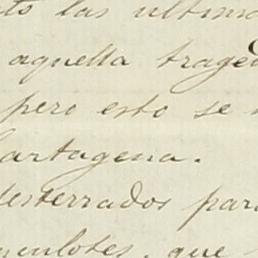 las ultima
aquella traged
pero esto se
Cartagena.
desterrados para
que